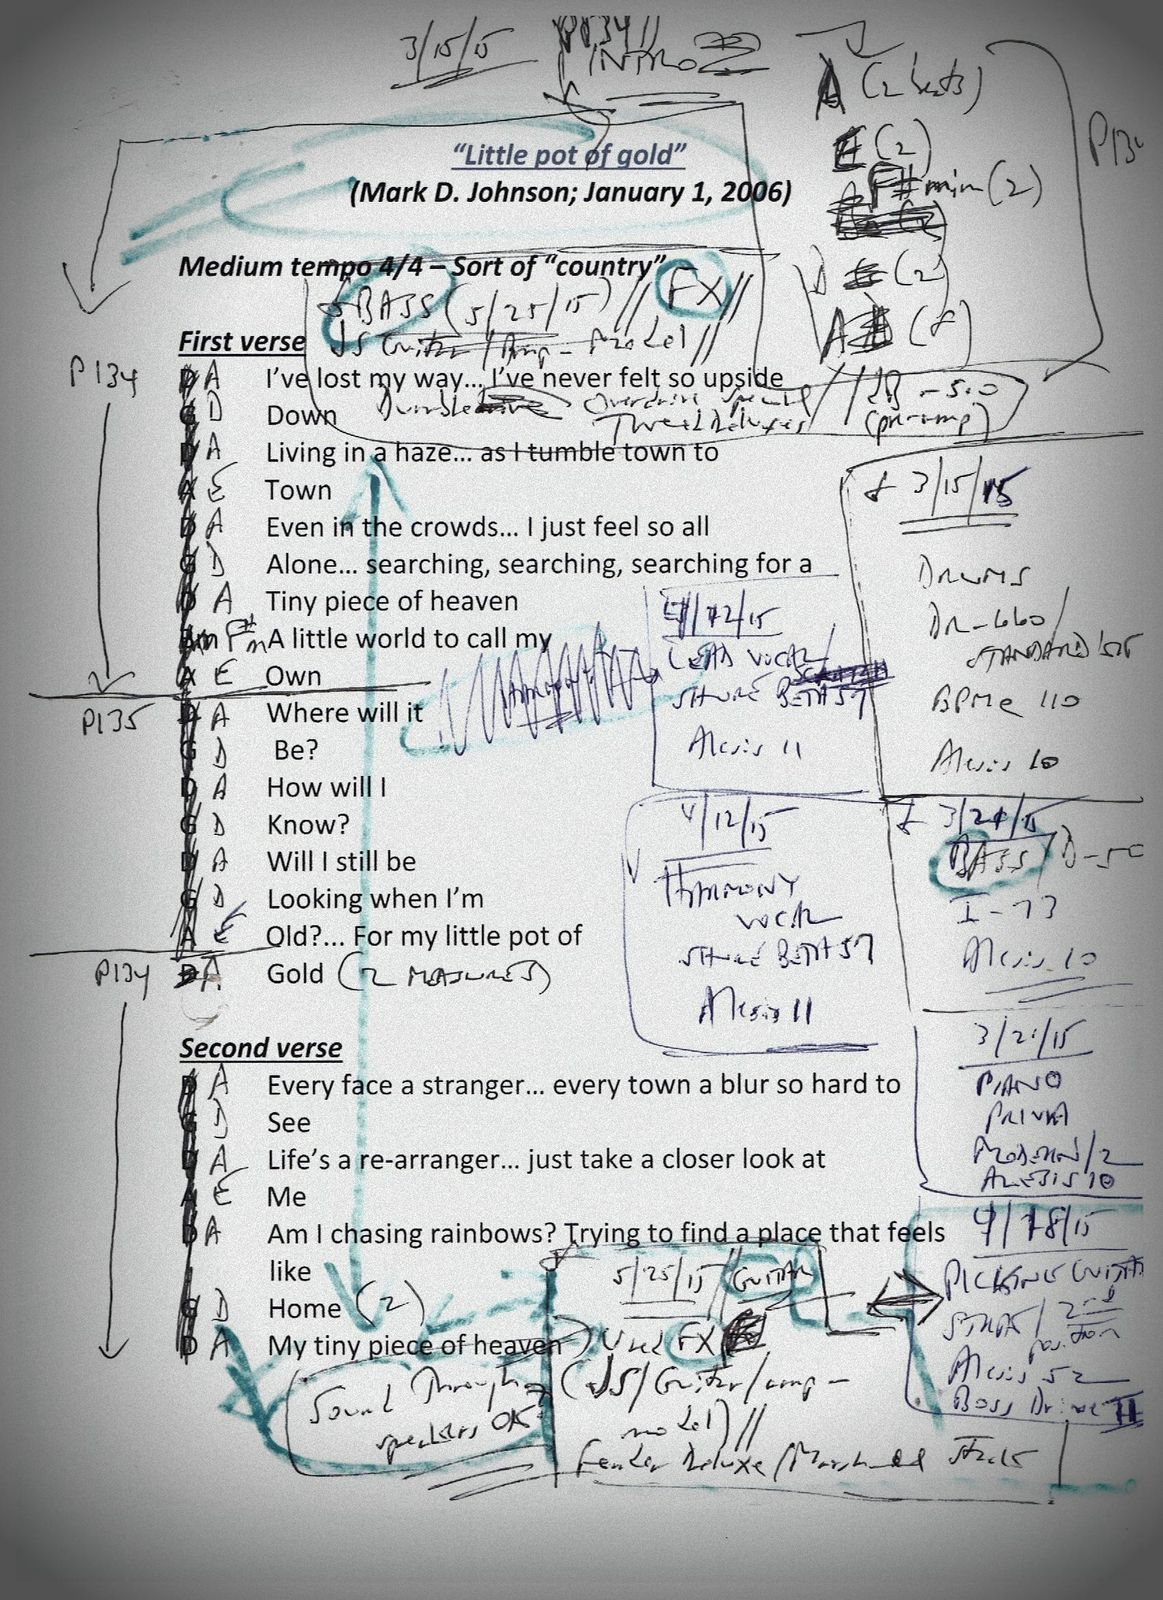 3/15/15
P134//
INTRO
A (2 beats)
E (2)
F#min (2)
D (2)
A (8)
"Little pot of gold"
(Mark D. Johnson; January 1, 2006)
Medium tempo 4/4 – Sort of "country"
BASS (5/25/15) // FX //
JS Guitar/Amp-Model //
First verse
P134
A I've lost my way... I've never felt so upside
D Down
Overdrive Special
(pre-amp)
A Living in a haze... as I tumble town to
E Town
A Even in the crowds... I just feel so all
D Alone... searching, searching, searching for a
A Tiny piece of heaven
F#m A little world to call my
E Own
P135
A Where will it
D Be?
A How will I
D Know?
A Will I still be
D Looking when I'm
E Old?... For my little pot of
P134
A Gold (2 MEASURES)
3/15/15
DRUMS
DR-660/
STANDARD
BPM@ 110
Alesis 10
4/12/15
LEAD VOCAL/
SHURE BETA 57
Alesis 11
4/12/15
HARMONY
VOCAL
SHURE BETA 57
Alesis 11
BASS/
I-73
Alesis 10
PIANO
PRIVIA
MODERN/2
ALESIS 10
Second verse
A Every face a stranger... every town a blur so hard to
D See
A Life's a re-arranger... just take a closer look at
E Me
A Am I chasing rainbows? Trying to find a place that feels
like
D Home (2)
A My tiny piece of heaven
4/18/15
PICKING GUITAR
2nd
position
Alesis 52
Boss Drive
5/25/15 // GUITAR
Used FX
(JS/Guitar/amp-
model) //
Fender Deluxe/Marshall Stack
Sound Through
speakers OK?